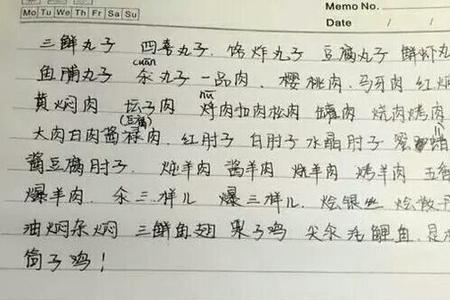 Memo No.
Mo Tu We Th Fr Sa Su
Date / /
三鲜丸子 四喜丸子、饹炸丸子 豆腐丸子 鲜虾丸
鱼脯丸子 汆丸子 一品肉、樱桃肉、马牙肉 红焖
cuān
黄焖肉 坛子肉 烀肉扣肉松肉 罐肉 烧肉烤肉
大肉白肉酱豆腐肉、红肘子 白肘子 水晶肘子 蜜蜡
酱豆腐肘子、炖羊肉 酱羊肉 烧羊肉 烤羊肉 五香
爆羊肉、汆三样儿 爆三样儿、烩银丝 烩散丹
油焖杂焖 三鲜鱼翅 栗子鸡 尖汆活鲤鱼、是
筒子鸡！